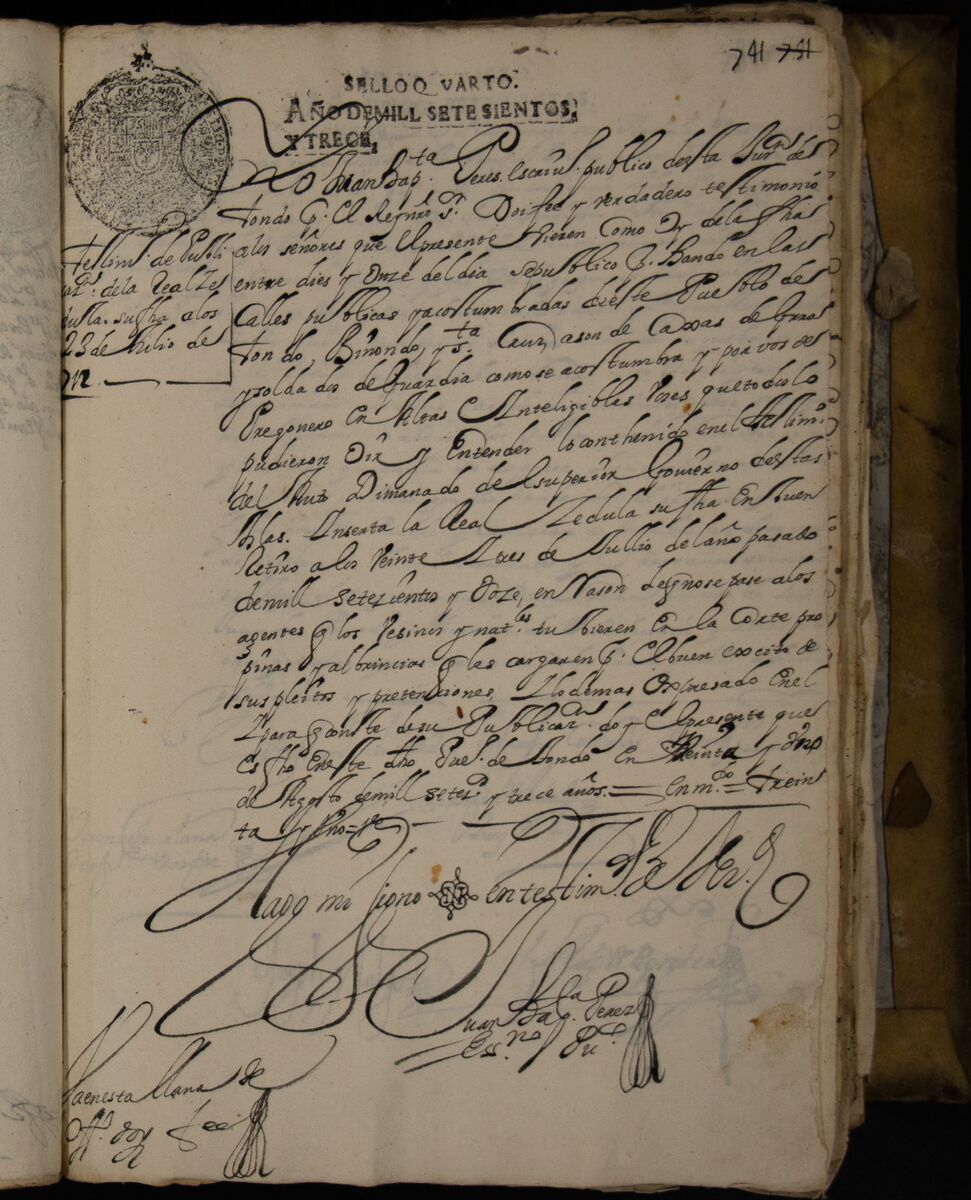 741 751
SELLO QVARTO.
AÑO DE MILL SETESIENTOS,
Y TRECE,
Yo Juan Bap.ta Peres Escriu.o publico desta Jur.on de
tondo p.r el Rey nrō s.r Doi fee y verdadero testimonio
a los señores que el presente Vieren Como oy dela fha
entre dies y Onze del dia se publico p.r Bando en las
Calles publicas y acostumbradas de este Pueblo de
tondo, Binondo, y s.ta Cruz, a son de Caxas de guerra
y soldados de Guardia como se acostumbra y por vos de
Pregonero En Altas E Inteligibles Voses que todos lo
pudieron Oir y Entender lo conthenido en el testim.o
del Auto Dimanado de el superior Gouierno destas
Yslas. Inserta la Real Zedula su fha En Buen
Retiro a los Veinte y tres de Jullio del año pasado
de mill setezientos y Doze, en Rason de q no se pase a los
agentes q los Vesinos y nat.les tubieren En la Corte pro
pinas y albricias q les cargaren p.r el buen exito de
sus pleitos y pretenciones. Y lo demas Expresado en el
Y para q conste de su Publicaz.on doy el presente que
es fho en este dho Pue.o de tondo En treinta y uno
de Agosto de mill setez.s y trece años. = En m.do = trein
ta y uno = Ve
Hago mi signo en testim.o de Ver.d
Juan Bap.ta Perez
Ess.no Pu.co
Testim.o de Publi
caz.n de la Real Ze
dula. su fha a los
23 de Julio de
712.
Va en esta llana de
off.o doy fee